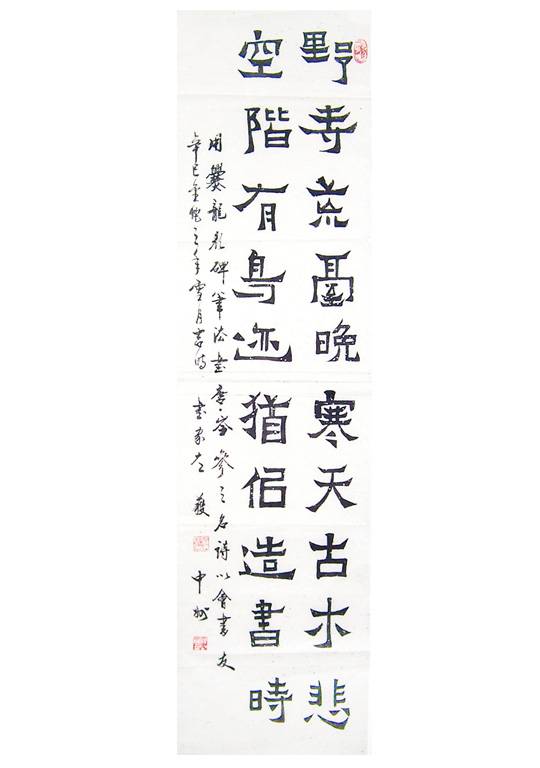 野寺荒臺晚寒天古木悲
空階有鳥迹猶佀造書時
用爨龍顏碑筆法書唐岑參之名詩以會書友
辛巳金蛇之年雪月吉時 書家 中州